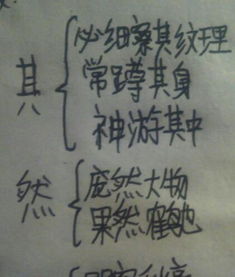 其
必细察其纹理
常蹲其身
神游其中
然
庞然大物
果然鹤也